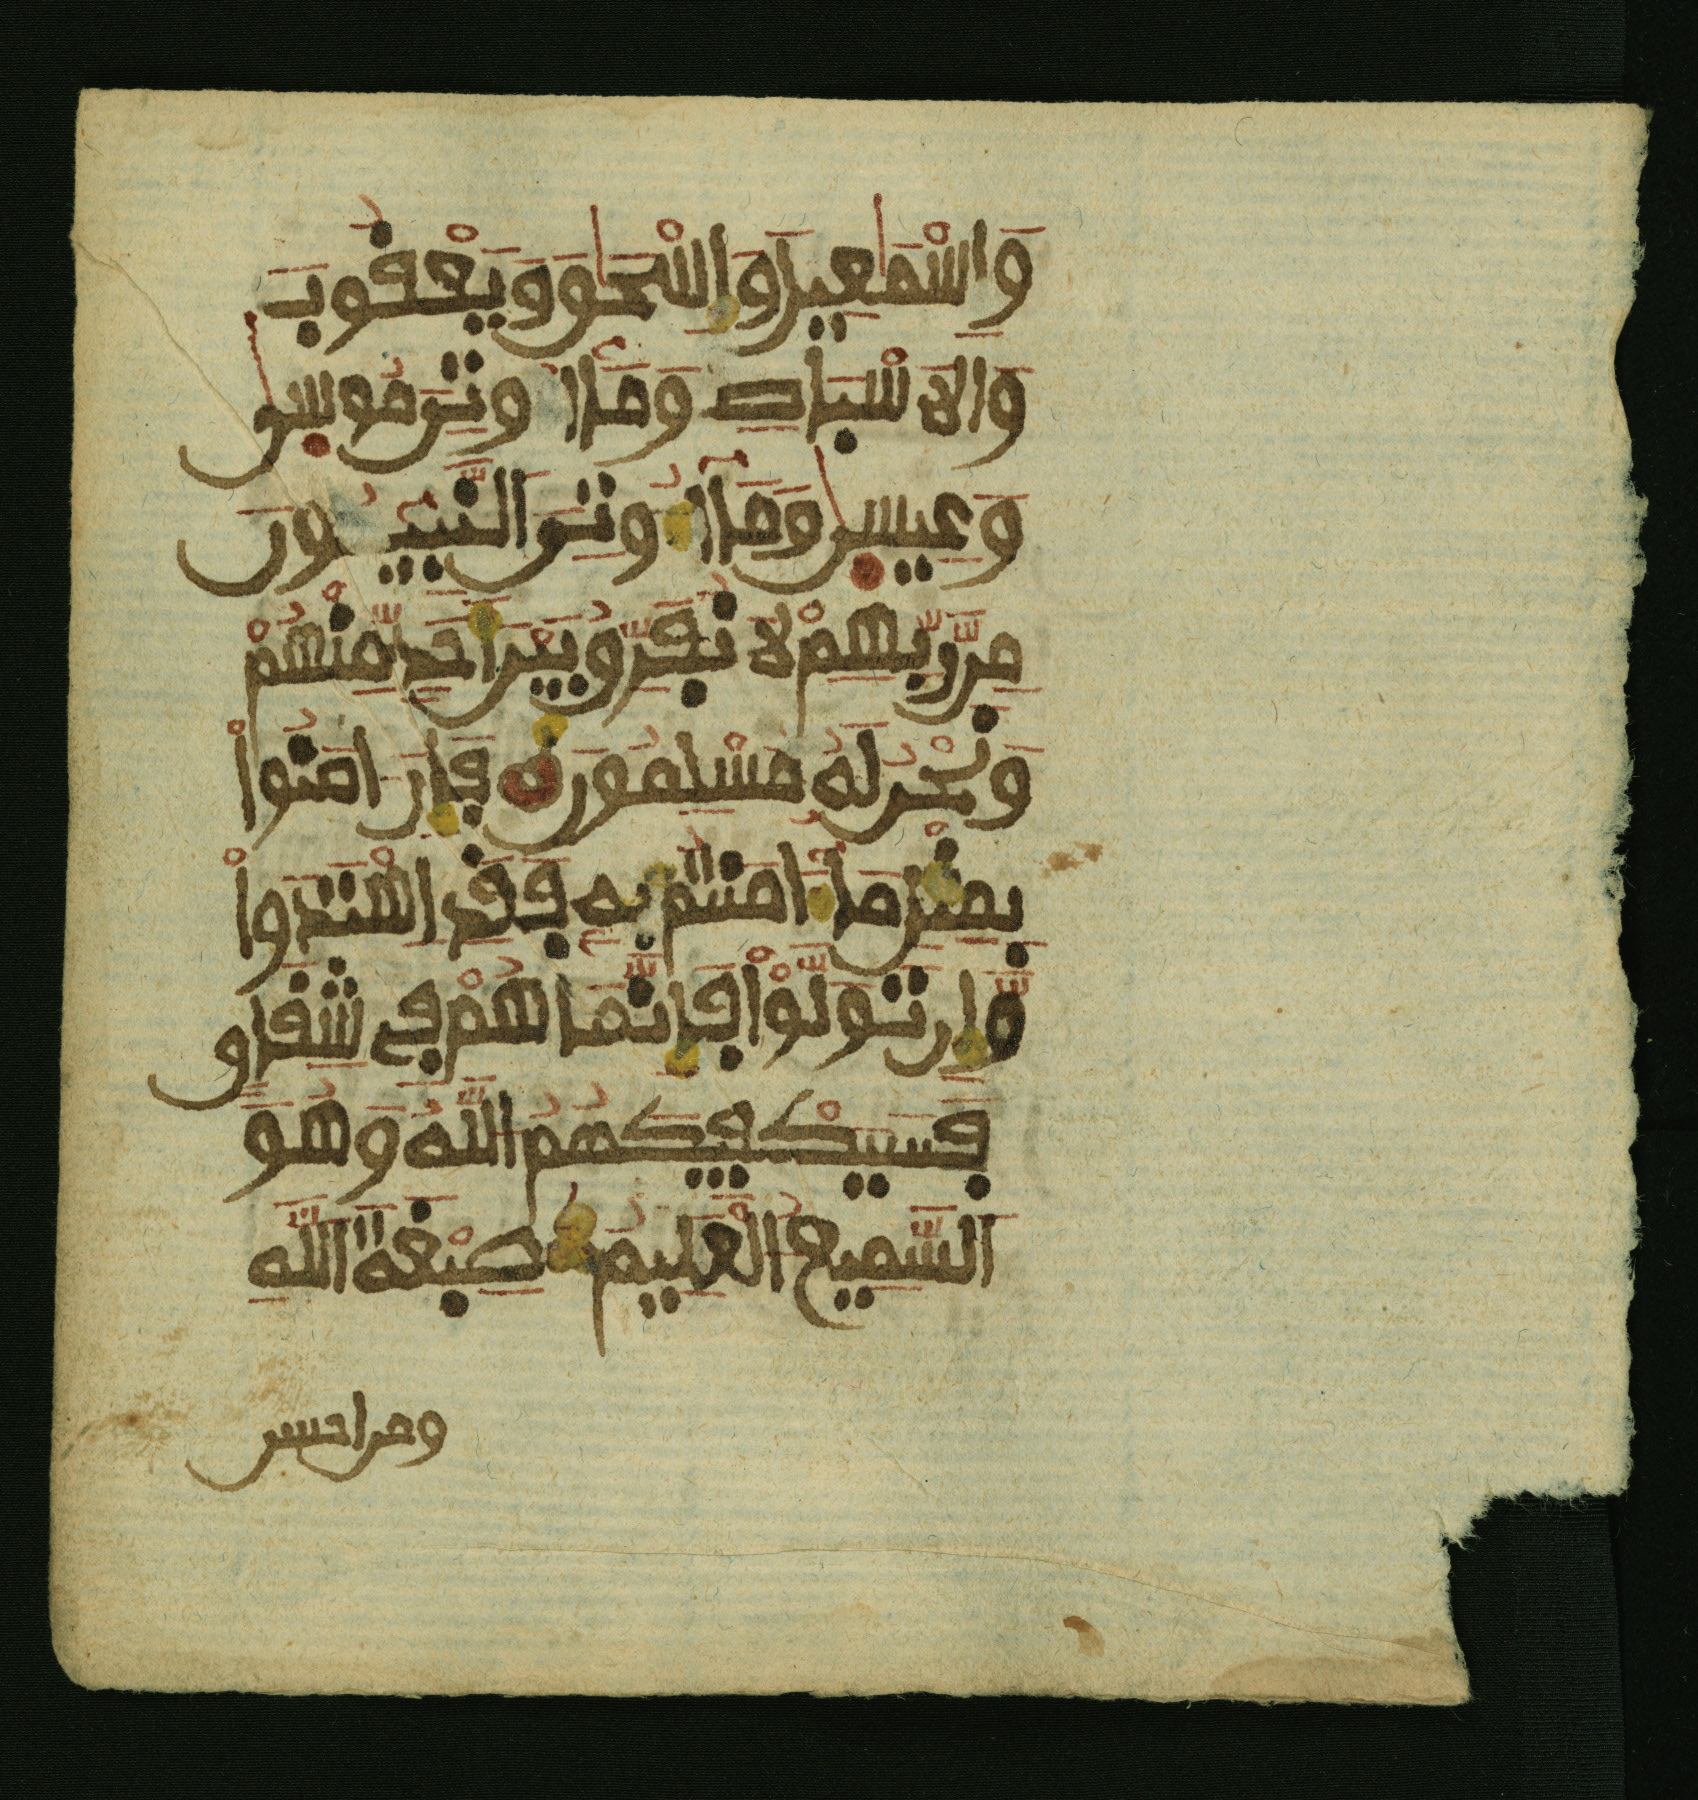 وَإِسْمَٰعِيلَ وَإِسْحَٰقَ وَيَعْقُوبَ
وَالَاسْبَاطِ وَمَآ أُوتِيَ مُوسَىٰ
وَعِيسَىٰ وَمَآ أُوتِيَ النَّبِيٓـُٔونَ
مِن رَّبِّهِمْ لَا نُفَرِّقُ بَيْنَ أَحَدٍ مِّنْهُمْ
وَنَحْنُ لَهُ مُسْلِمُونَ فَإِنَ امَنُواْ
بِمِثْلِ مَآ ءَامَنتُم بِهِ فَقَدِ اهْتَدَواْ
وَّإِن تَوَلَّوْاْ فَإِنَّمَا هُمْ فِي شِقَاقٍ
فَسَيَكْفِيكَهُمُ اللَّهُ وَهُوَ
السَّمِيعُ الْعَلِيمُ صِبْغَةَ اللَّهِ
ومن احسن